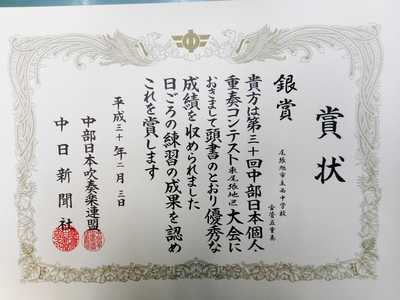 賞状
銀賞
尾張旭市立西中学校
金管五重奏
貴方は第三十回中部日本個人・
重奏コンテスト東尾張地区大会に
おきまして頭書のとおり優秀な
成績を収められました
日ごろの練習の成果を認め
これを賞します
平成三十年二月三日
中部日本吹奏楽連盟
中日新聞社